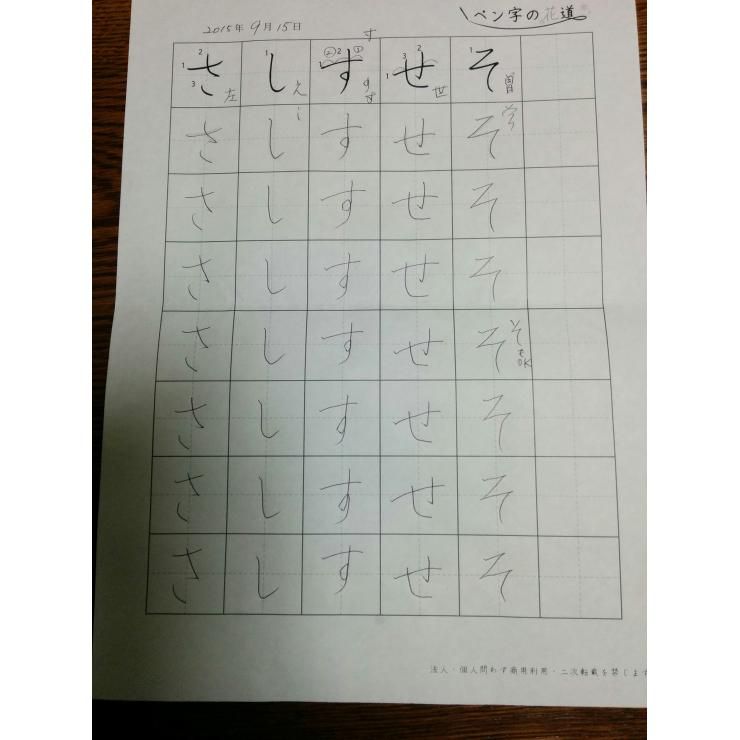 ペン字の花道
2015年9月15日
す
さ し す せ そ
左 え す 世 曽
さ し す せ そ
さ し す せ そ
さ し す せ そ
さ し す せ そ そもOK
さ し す せ そ
さ し す せ そ
さ し す せ そ
法人・個人問わず商用利用・二次転載を禁じます